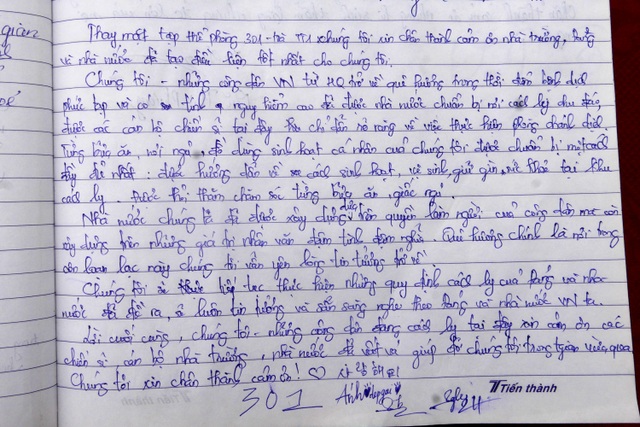 gian
Thay mặt tập thể phòng 301 - toà T4 chúng tôi xin chân thành cảm ơn nhà trường, Đảng
và nhà nước đã tạo điều kiện tốt nhất cho chúng tôi.
Chúng tôi - những công dân VN từ HQ trở về quê hương trong thời điểm bệnh dịch
phức tạp và có tính nguy hiểm cao đã được nhà nước chuẩn bị nơi cách ly chu đáo,
được các cán bộ chiến sĩ tại đây chỉ dẫn rõ ràng về việc thực hiện phòng chánh dịch
Từng bữa ăn, nơi ngủ, đồ dùng sinh hoạt cá nhân của chúng tôi được chuẩn bị một cách
đầy đủ nhất: được hướng dẫn về cách sinh hoạt, vệ sinh, giữ gìn sức khoẻ tại khu
cách ly. Được hỏi thăm chăm sóc từng bữa ăn, giấc ngủ.
Nhà nước chúng ta đã được xây dựng dựa trên quyền làm người của công dân mà còn
xây dựng trên những giá trị nhân văn đậm tình đậm nghĩa. Quê hương chính là nơi trong
cơn loạn lạc này chúng tôi vẫn yên lòng tin tưởng trở về.
Chúng tôi sẽ tiếp tục thực hiện những quy định cách ly của Đảng và nhà
nước đã đề ra, sẽ luôn tin tưởng và sẵn sàng nghe theo Đảng và nhà nước VN ta.
Lời cuối cùng, chúng tôi - những công dân đang cách ly tại đây xin cảm ơn các
chiến sĩ cán bộ nhà trường, nhà nước đã vất vả giúp đỡ chúng tôi trong thời gian vừa qua
Chúng tôi xin chân thành cảm ơn! ♡ 사랑해요!
301
Tiến thành